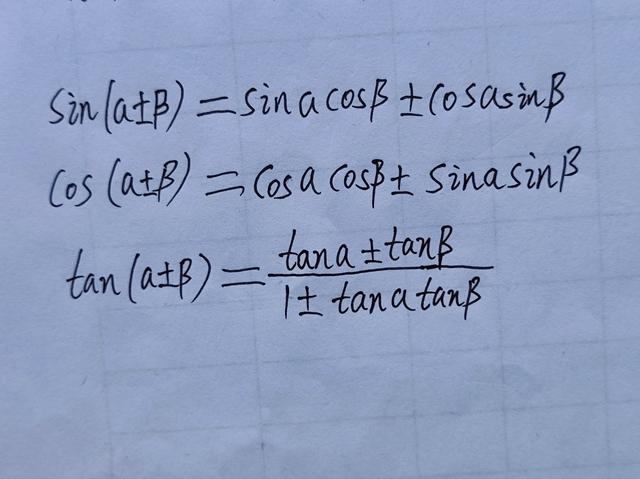 sin(a±β)=sinacosβ±cosasinβ
cos(a±β)=cosacosβ±sinasinβ
tan(a±β)=\frac{tana±tanβ}{1±tanatanβ}